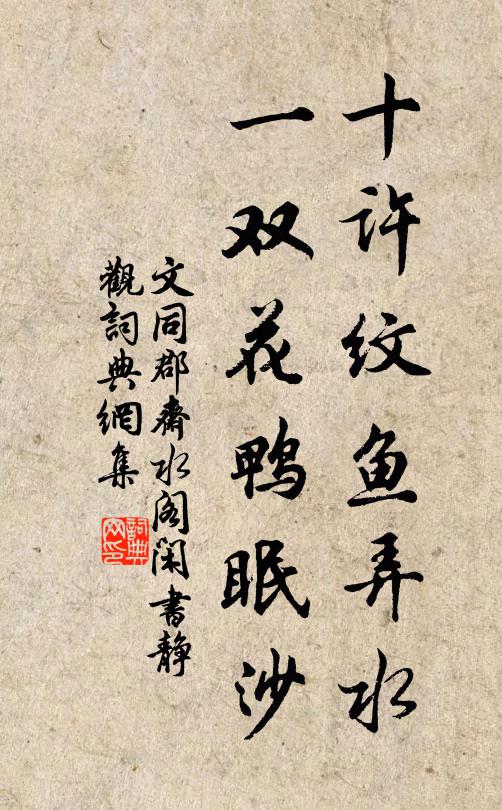 十许纹鱼弄水
一双花鸭眠沙
文同郡斋水阁闲书静
觀詞典網集
詞典
网印